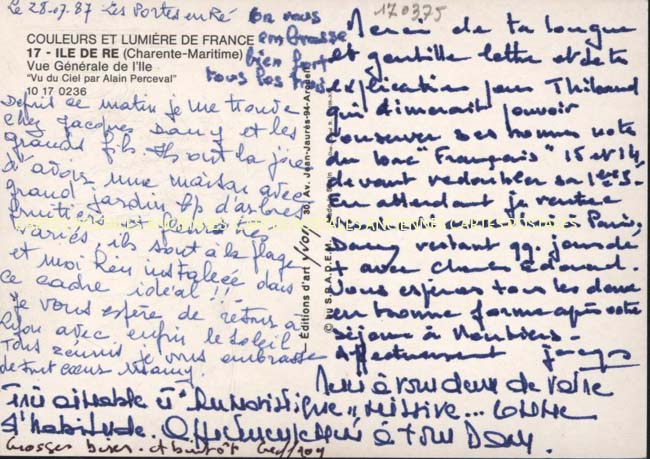 Le 28.07.87 - Les Portes en Ré
COULEURS ET LUMIÈRE DE FRANCE
17 - ILE DE RE (Charente-Maritime)
Vue Générale de l'Ile
"Vu du Ciel par Alain Perceval"
10 17 0236
on vous
embrasse
bien fort
tous les trois
170375
Depuis ce matin je me trouve
chez Jacques Dany et les
grands fils ils ont la joie
d'avoir une maison avec
grand jardin bp d'arbres
fruitiers
variés, ils sont à la plage
et moi bien installée dans
ce cadre idéal !!
je vous espère de retour à
avec enfin le soleil
Tous réunis je vous embrasse
de tout cœur Mamy.
Editions d'art yvon 30, Av. Jean-Jaurès-94-Arcueil
© by S.P.A.D.E.M.
ALISANCIENNE CARTES POSTALES
Merci de ta longue
et gentille lettre et de ta
explication pour Thibaud
qui aimerait pouvoir
conserver ses bonnes note
du bac "Français" 15 et 14,
devant redoubler sa 1ère S.
En attendant je rentre
Paris,
Dany restant qq. jours de
+ avec Edouard.
Nous espérons tous les deux
en bonne forme après votre
séjour à
Affectueusement Jacques
Merci à vous deux de votre
très aimable et "humoristique" missive... comme
d'habitude. Affectueusement à tous Dany.
Grosses bises. A bientôt Geoffroy